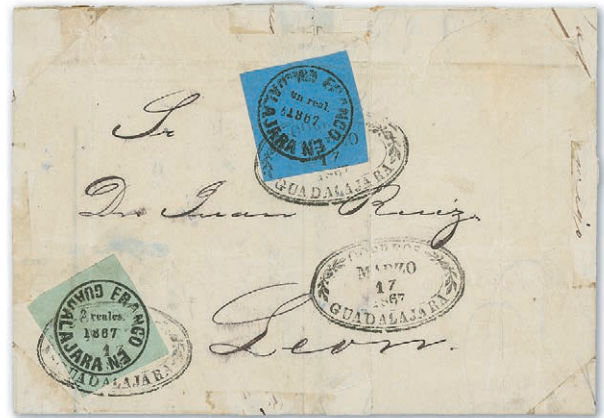 FRANCO EN GUADALAJARA
un real.
1867
17
1867
GUADALAJARA
Sr
Dn Juan Ruiz.
CORREOS
MARZO
17
1867
GUADALAJARA
FRANCO EN GUADALAJARA
2 reales.
1867
GUADALAJARA
Leon.